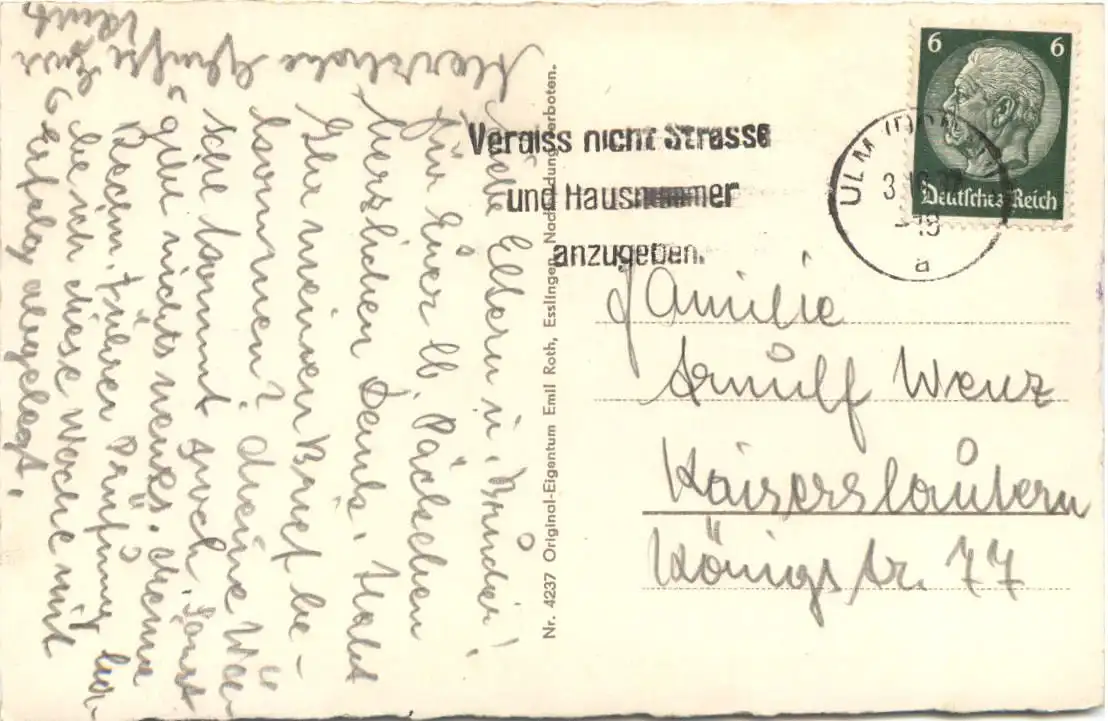 Liebe Eltern u. Bruder!
Für Euer lb. Päckchen
herzlichen Dank. Habt
Ihr meinen Brief be-
kommen? Meine Wä-
sche kommt noch. Sonst
gibt nichts neues. Meine
Rechn. führer Prüfung ha-
be ich diese Woche mit
Erfolg abgelegt.
Herzliche Grüße
Euer
Nr. 4237 Original-Eigentum Emil Roth, Esslingen. Nachbildung verboten.
Vergiss nicht Strasse
und Hausnummer
anzugeben.
6 6
Deutsches Reich
ULM
-18
a
Familie
Arnulf Wenz
Kaiserslautern
Königstr. 77